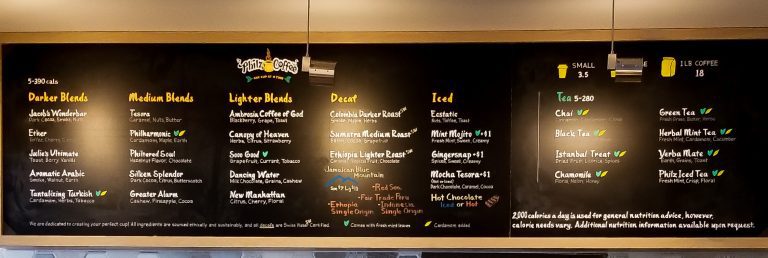 Philz Coffee
ONE CUP AT A TIME
5-390 cals
Darker Blends
Jacob's Wonderbar
Dark Cocoa, Smoke, Nuts
Ether
Julie's Ultimate
Toast, Berry, Vanilla
Aromatic Arabic
Smokey, Walnut, Earth
Tantalizing Turkish
Cardamom, Herbs, Tobacco
Medium Blends
Tesora
Caramel, Nuts, Butter
Philharmonic
Cardamom, Maple, Earth
Philtered Soul
Hazelnut Flavor, Chocolate
Silken Splendor
Dark Cocoa, Citrus, Butterscotch
Greater Alarm
Cashew, Pineapple, Cocoa
Lighter Blends
Ambrosia Coffee of God
Blackberry, Grape, Toast
Canopy of Heaven
Herbs, Citrus, Strawberry
Sooo Good
Grapefruit, Currant, Tobacco
Dancing Water
Milk Chocolate, Grains, Cashew
New Manhattan
Citrus, Cherry, Floral
Decaf
Colombia Darker Roast SW
Smoke, Maple, Herbs
Sumatra Medium Roast SW
Earth, Cocoa, Grapefruit
Ethiopia Lighter Roast SW
Caramel, Smoke, Chocolate
Jamaican Blue
Mountain
Red Sea
Fair Trade Peru
Ethopia
Single Origin
Indonesia
Single Origin
Iced
Ecstatic
Bold, Toffee, Toast
Mint Mojito +$1
Fresh Mint, Sweet, Creamy
Gingersnap +$1
Spiced, Sweet, Creamy
Mocha Tesora +$1
Dark Chocolate, Caramel, Cocoa
Hot Chocolate
Iced or Hot
SMALL
3.5
1LB COFFEE
18
Tea 5-280
Chai
Black Tea
Istanbul Treat
Dried Fruit, Lorica, Spices
Chamomile
Floral, Melon, Honey
Green Tea
Fresh Press, Butter, Herbs
Herbal Mint Tea
Fresh Mint, Cardamom, Cucumber
Yerba Mate
Earth, Grains, Toast
Philz Iced Tea
Fresh Mint, Crisp, Floral
We are dedicated to creating your perfect cup! All ingredients are sourced ethically and sustainably, and all decafs are Swiss Water SW Certified.
Comes with Fresh mint leaves
Cardamom added
2,000 calories a day is used for general nutrition advice, however,
calorie needs vary. Additional nutrition information available upon request.